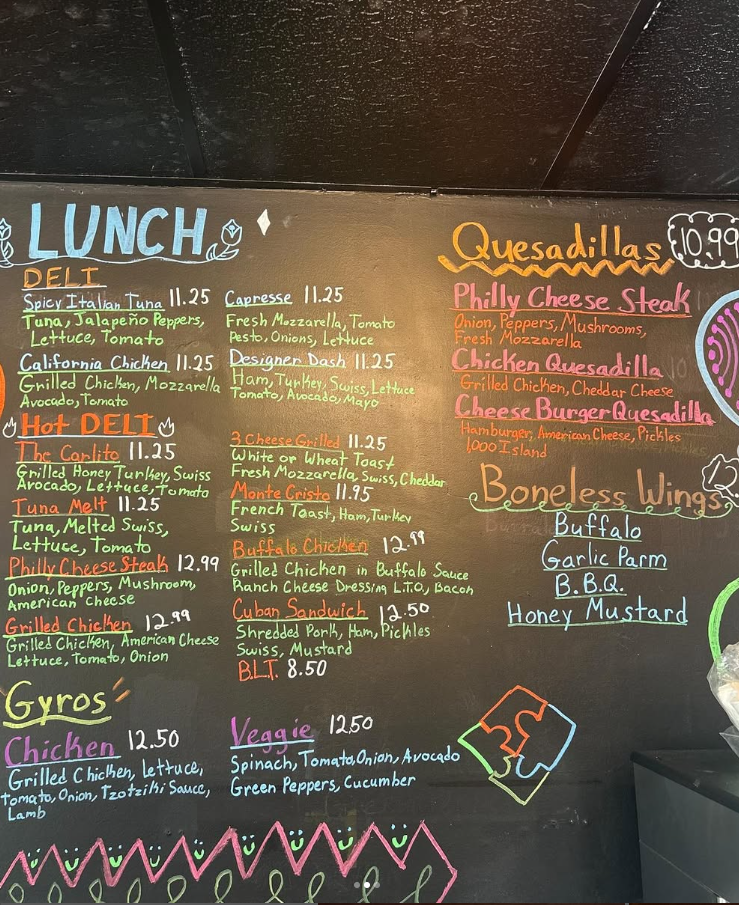 LUNCH
DELI
Spicy Italian Tuna 11.25
Tuna, Jalapeño Peppers,
Lettuce, Tomato
California Chicken 11.25
Grilled Chicken, Mozzarella
Avocado, Tomato
Capresse 11.25
Fresh Mozzarella, Tomato
Pesto, Onions, Lettuce
Designer Dash 11.25
Ham, Turkey, Swiss, Lettuce
Tomato, Avocado, Mayo
Hot DELI
The Carlito 11.25
Grilled Honey Turkey, Swiss
Avocado, Lettuce, Tomato
Tuna Melt 11.25
Tuna, Melted Swiss,
Lettuce, Tomato
Philly Cheese Steak 12.99
Onion, Peppers, Mushroom,
American Cheese
Grilled Chicken 12.99
Grilled Chicken, American Cheese
Lettuce, Tomato, Onion
3 Cheese Grilled 11.25
White or Wheat Toast
Fresh Mozzarella, Swiss, Cheddar
Monte Cristo 11.95
French Toast, Ham, Turkey
Swiss
Buffalo Chicken 12.99
Grilled Chicken in Buffalo Sauce
Ranch Cheese Dressing L.T.O, Bacon
Cuban Sandwich 12.50
Shredded Pork, Ham, Pickles
Swiss, Mustard
B.L.T. 8.50
Gyros
Chicken 12.50
Grilled Chicken, Lettuce,
Tomato, Onion, Tzotziki Sauce,
Lamb
Veggie 12.50
Spinach, Tomato, Onion, Avocado
Green Peppers, Cucumber
Quesadillas 10.99
Philly Cheese Steak
Onion, Peppers, Mushrooms,
Fresh Mozzarella
Chicken Quesadilla
Grilled Chicken, Cheddar Cheese
Cheese Burger Quesadilla
Hamburger, American Cheese, Pickles
1,000 Island
Boneless Wings
Buffalo
Garlic Parm
B.B.Q.
Honey Mustard